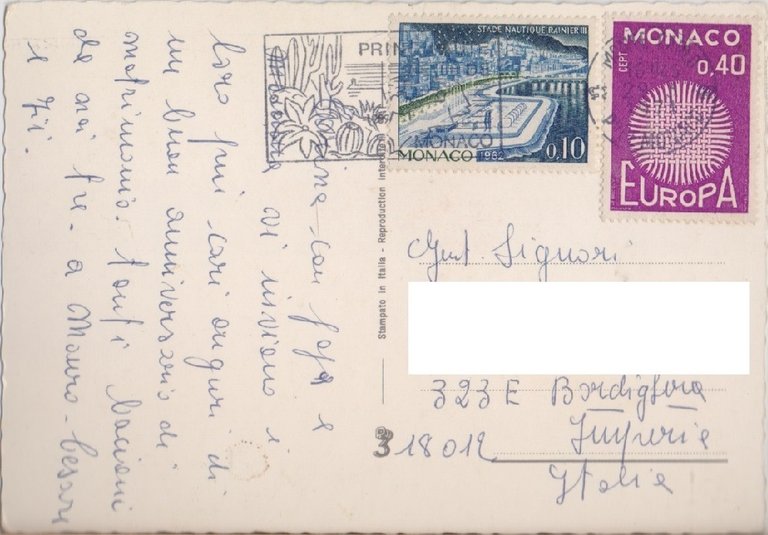 con
vi inviano i
loro più cari auguri di
un buon anniversario di
matrimonio. tanti bacioni
da noi tre - a Mauro -
e
Stampato in Italia - Reproduction
STADE NAUTIQUE RAINIER III
MONACO 1962 0,10
MONACO
CEPT
0,40
EUROPA
MONACO
Gent. Signori
323 E Bordighera
18012 Imperia
Italia